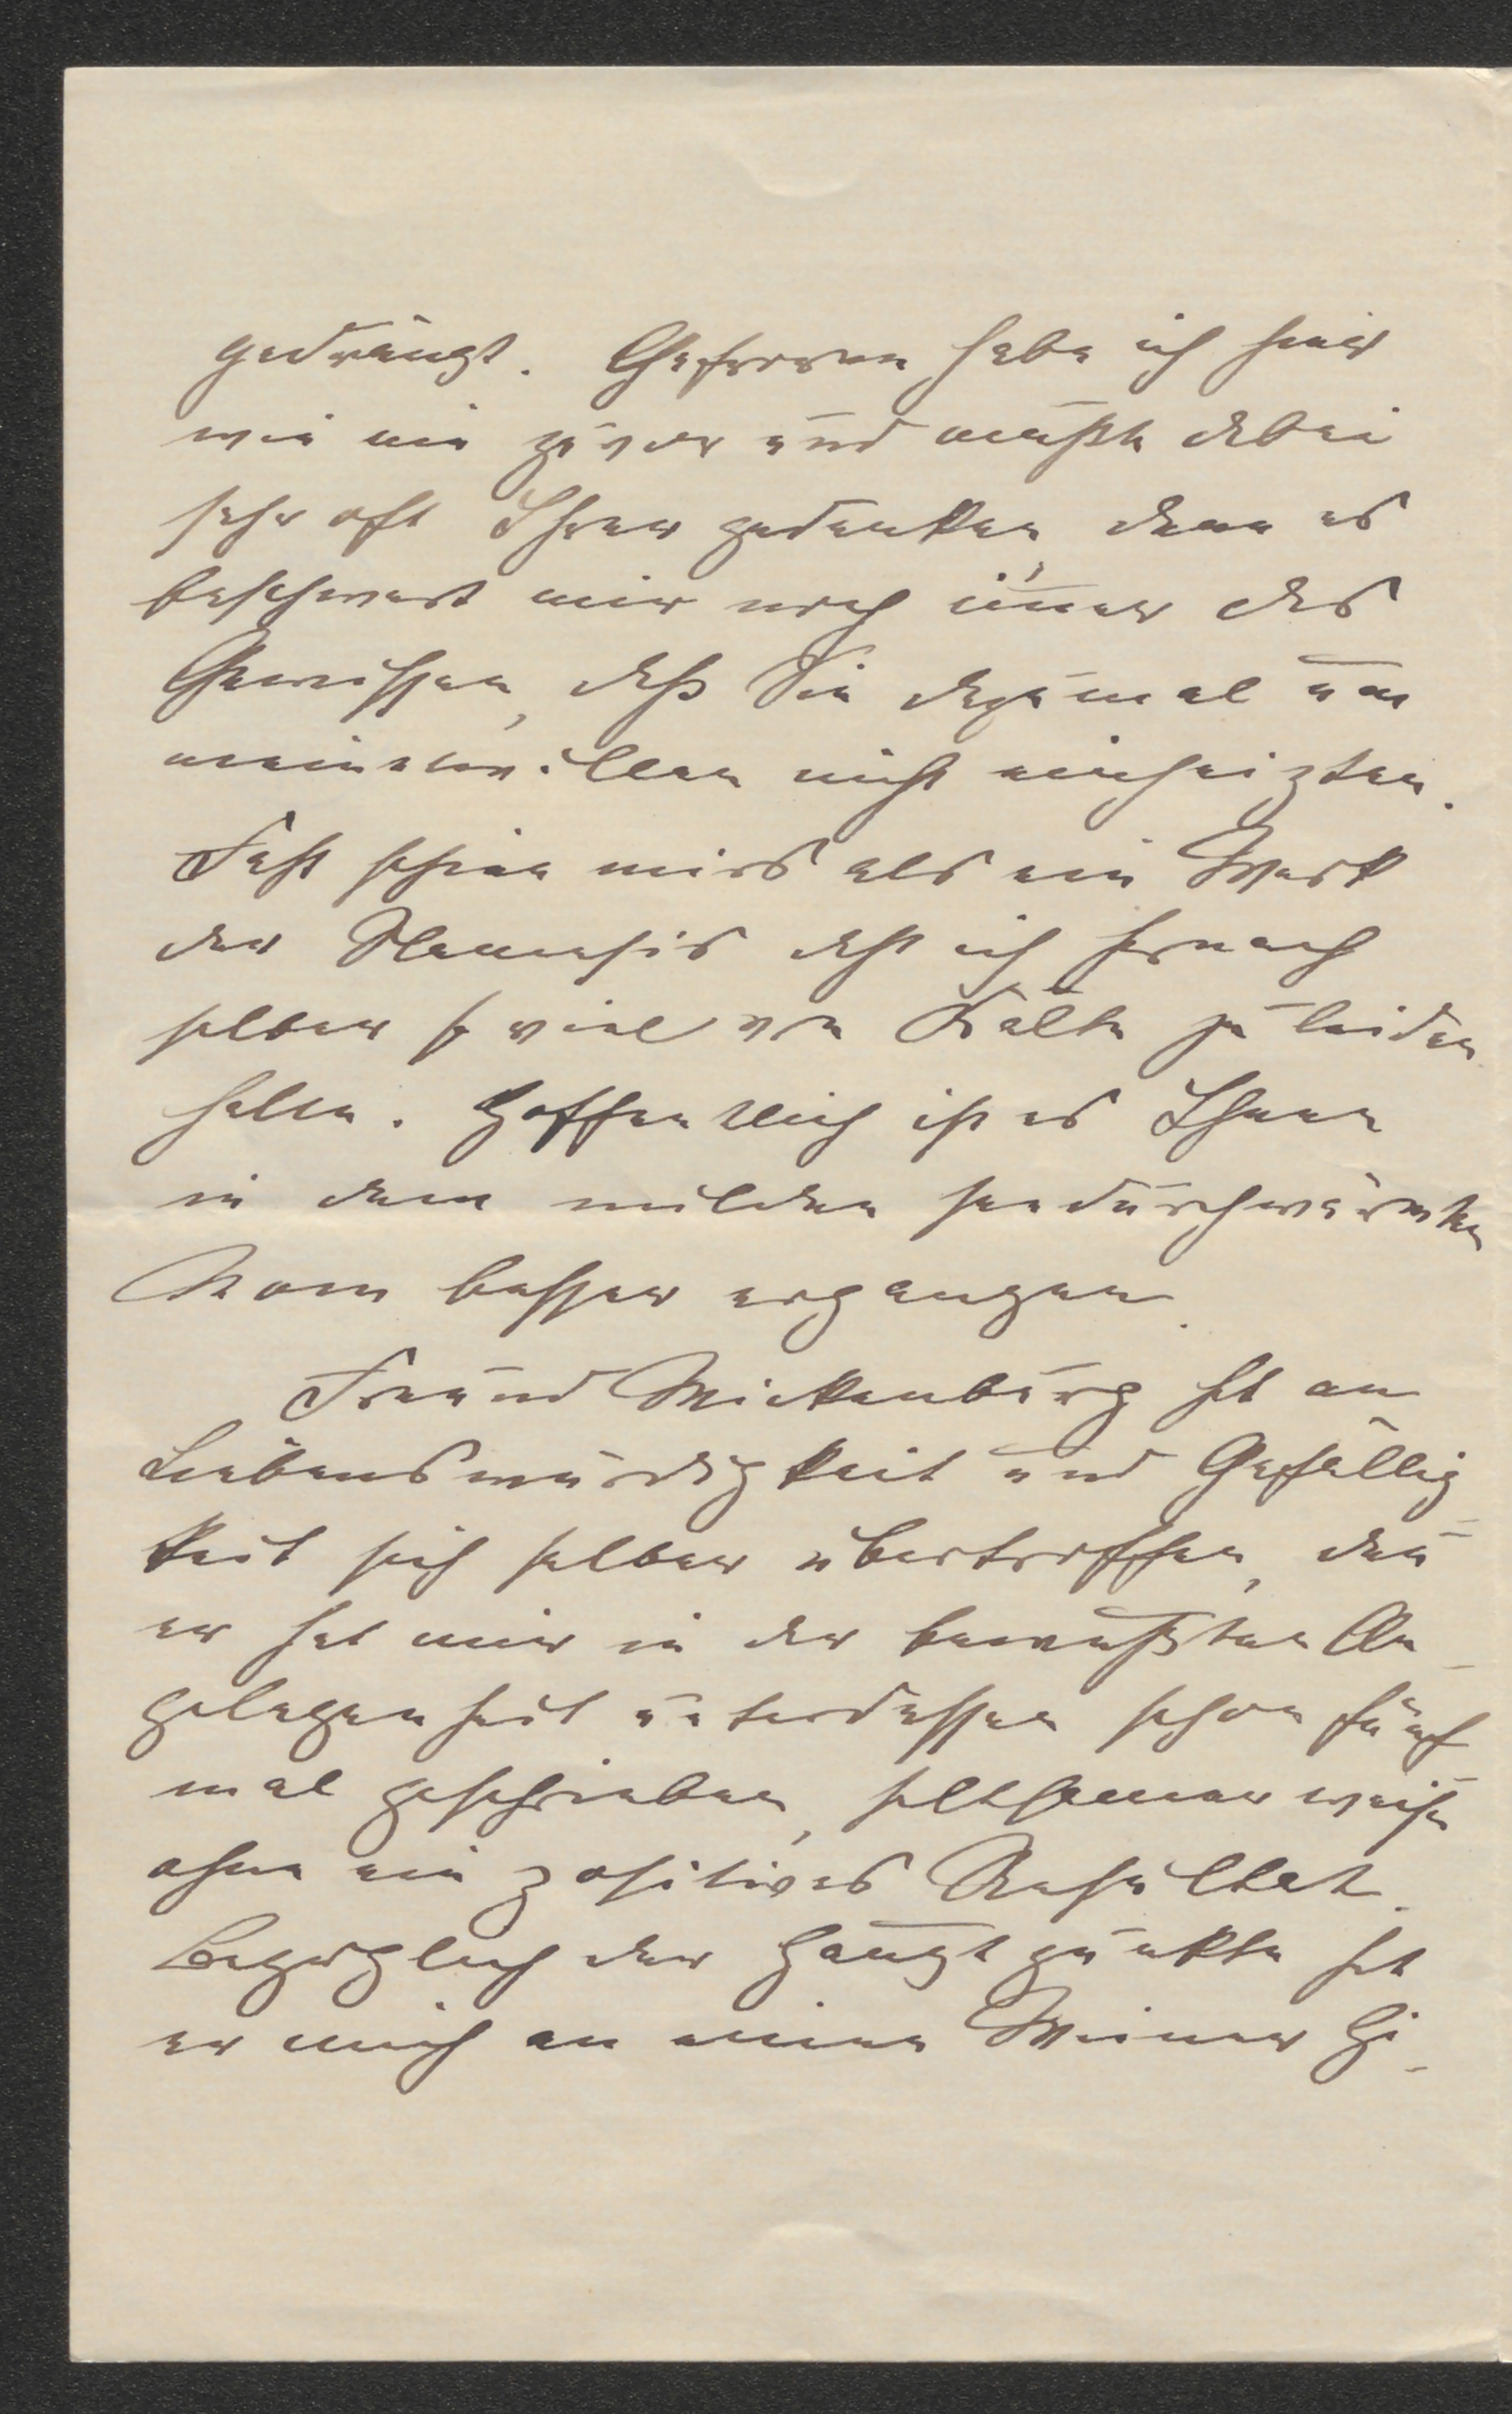 gedrängt. Gefroren habe ich heuer
wie nie zuvor und mußte dabei
sehr oft Ihrer gedenken, denn es
beschwert mir noch im̄er das
Gewissen, daß Sie dazumal um
meinetwillen nicht einheizten.
Fast schien mirs als ein Werk
der Nemesis daß ich hernach
selber so viel von Kälte zu leiden
hatte. Hoffentlich ist es Ihnen
in dem milden seedurchwärmten
Rom besser ergangen.
Freund Wickenburg hat an
Liebenswürdigkeit und Gefällig
keit sich selber übertroffen, den̄
er hat mir in der bewußten An-
gelegenheit unterdessen schon fünf
mal geschrieben, seltsamer weise
ohne ein positives Resultat.
Bezüglich der Hauptpunkte hat
er mich an meine Wiener Hi-